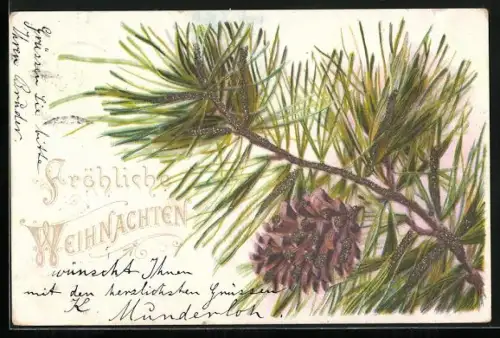 Grüssen Sie bitte
Ihren Bruder
Fröhliche
WEIHNACHTEN
wünscht Ihnen
mit den herzlichsten Grüssen
K. Munderloh.